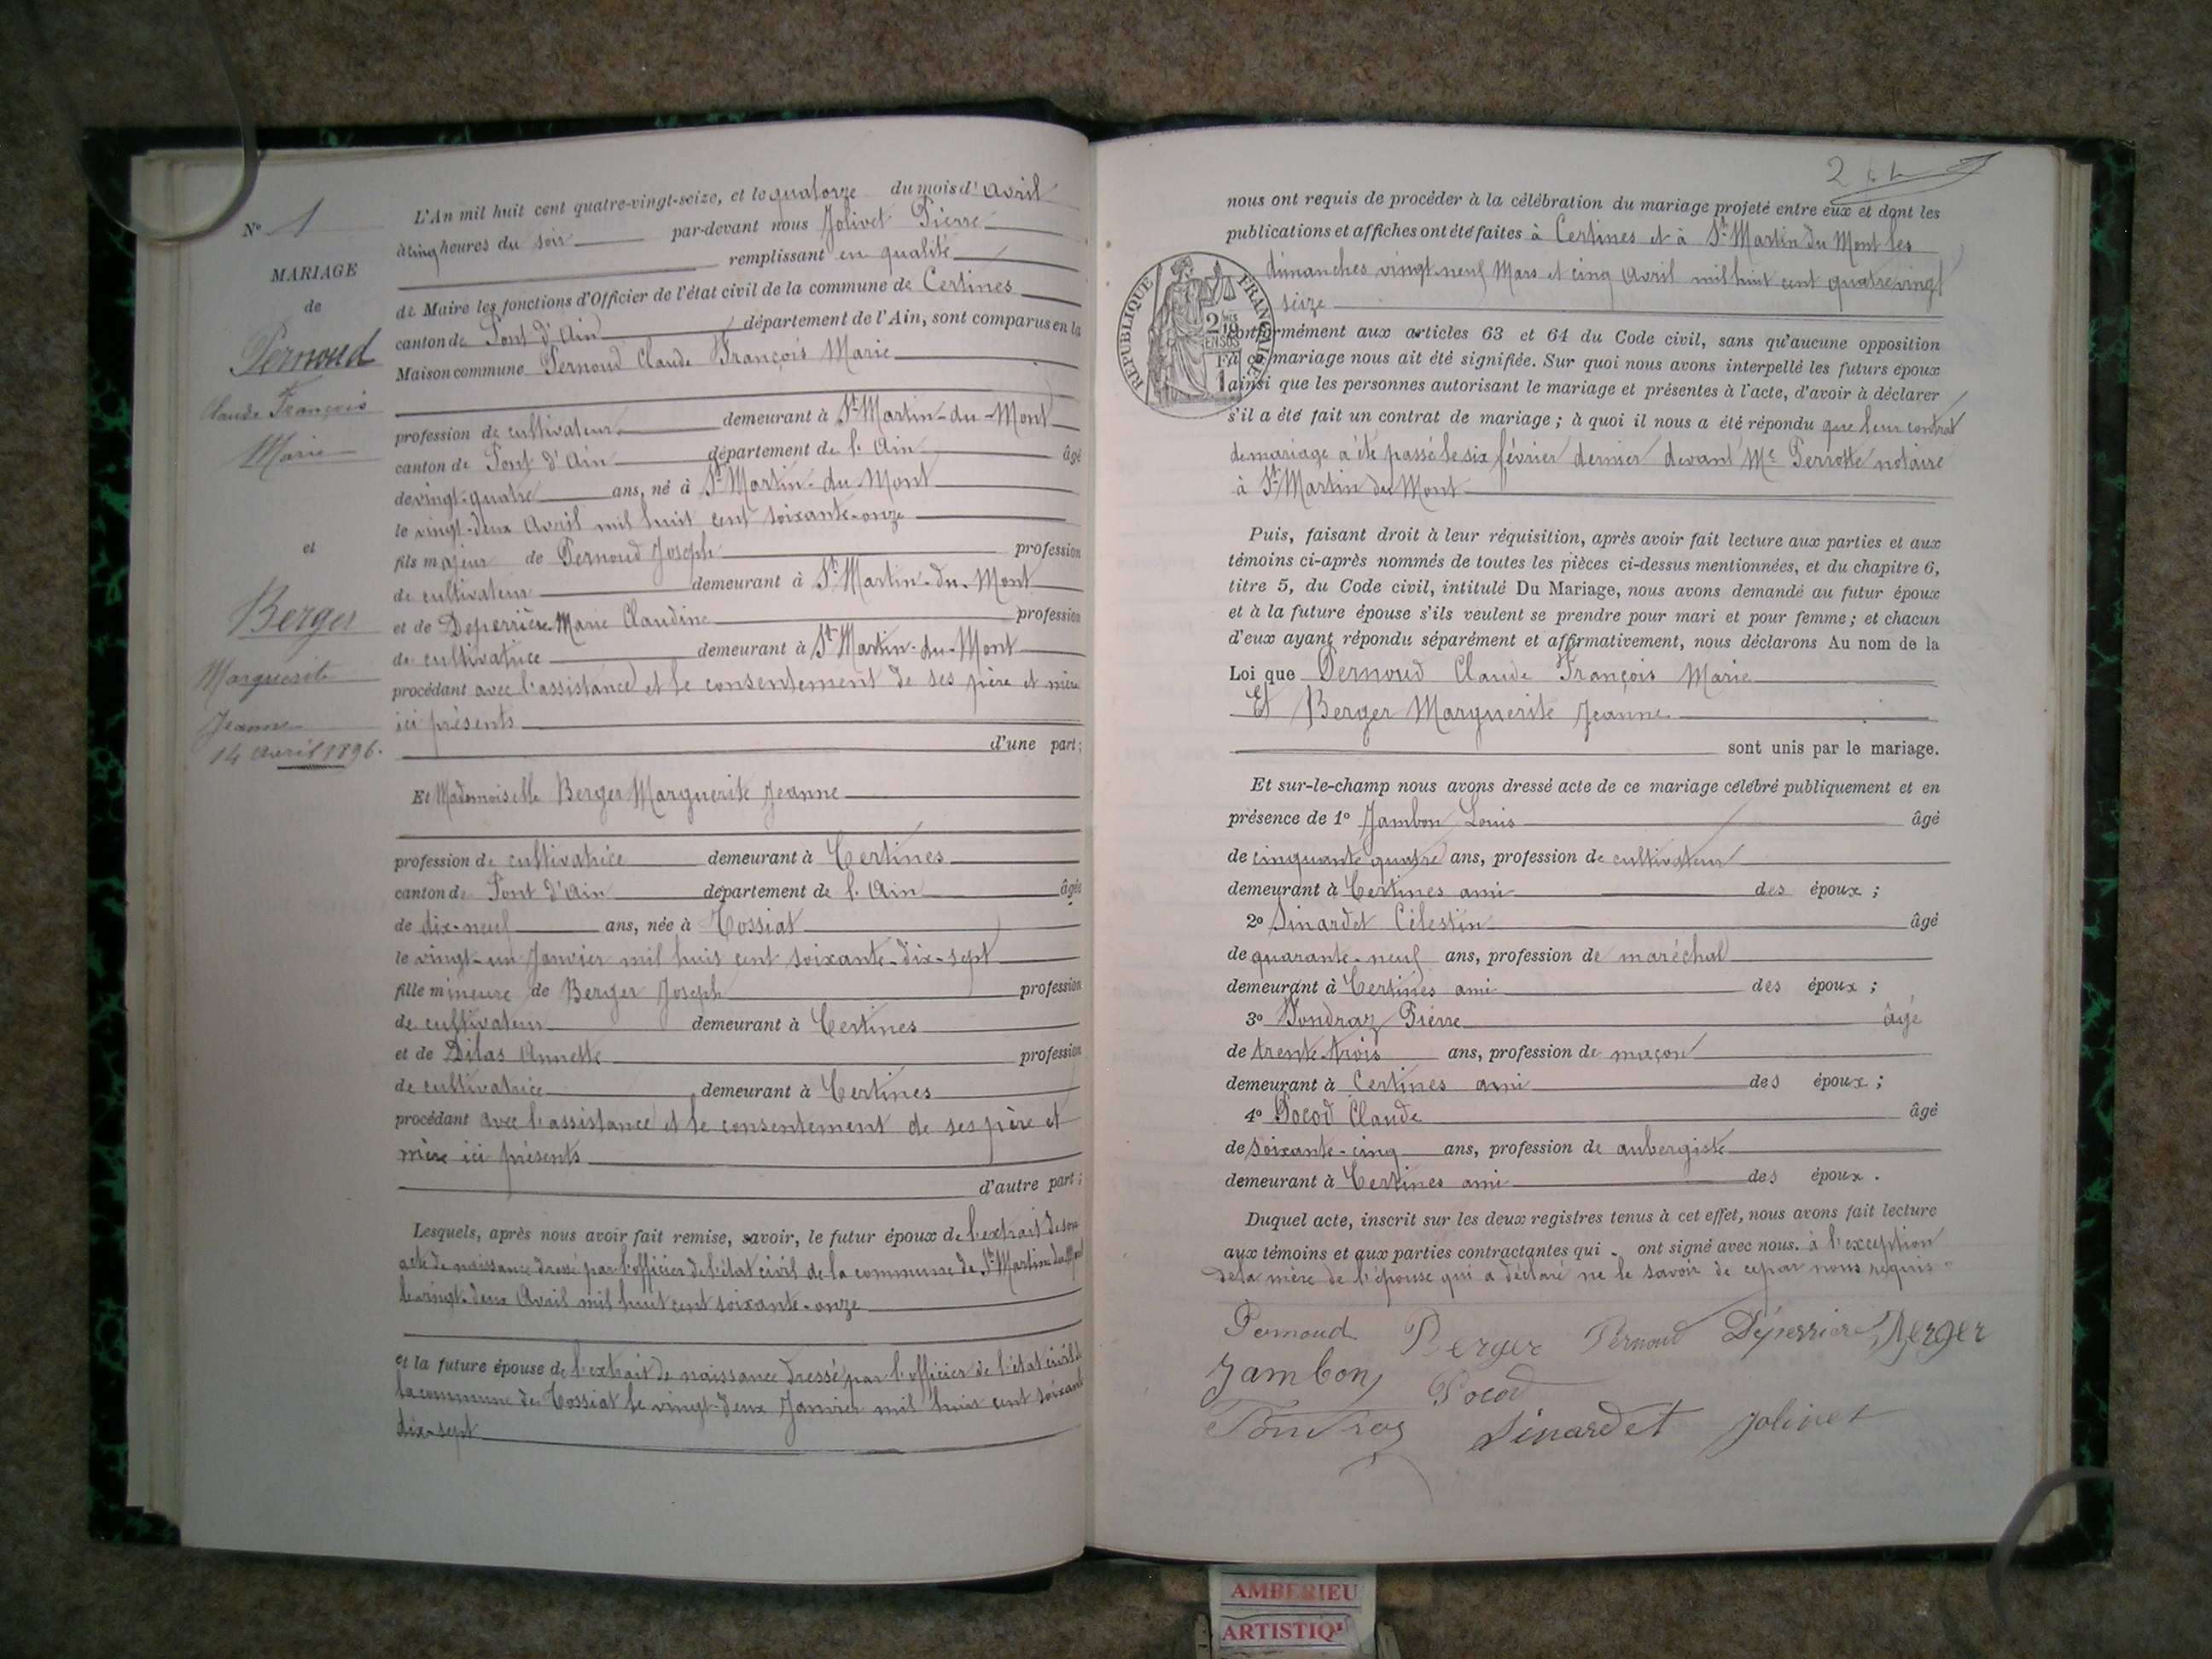 N° 1
MARIAGE
de
Pernoud
Claude François
Marie
et
Berger
Marguerite
Jeanne
14 avril 1896.
L'An mil huit cent quatre-vingt-seize, et le quatorze du mois d'avril
à cinq heures du soir par-devant nous Jolivet Pierre
remplissant en qualité
de Maire les fonctions d'Officier de l'état civil de la commune de Certines
canton de Pont d'Ain département de l'Ain, sont comparus en la
Maison commune Pernoud Claude François Marie
profession de cultivateur demeurant à St Martin-du-Mont
canton de Pont d'Ain département de l'Ain âgé
de vingt-quatre ans, né à St Martin-du-Mont
le vingt-deux Avril mil huit cent soixante-onze
fils majeur de Pernoud Joseph profession
de cultivateur demeurant à St Martin-du-Mont
et de Deperrière Marie Claudine profession
de cultivatrice demeurant à St Martin-du-Mont
procédant avec l'assistance et le consentement de ses père et mère
ici présents
d'une part;
Et Mademoiselle Berger Marguerite Jeanne
profession de cultivatrice demeurant à Certines
canton de Pont d'Ain département de l'Ain âgée
de dix-neuf ans, née à Tossiat
le vingt-un Janvier mil huit cent soixante-dix-sept
fille mineure de Berger Joseph profession
de cultivateur demeurant à Certines
et de Dilas Annette profession
de cultivatrice demeurant à Certines
procédant avec l'assistance et le consentement de ses père et
mère ici présents
d'autre part;
Lesquels, après nous avoir fait remise, savoir, le futur époux de l'extrait de son
acte de naissance dressé par l'officier de l'état civil de la commune de St Martin du Mont
le vingt-deux Avril mil huit cent soixante-onze
et la future épouse de l'extrait de naissance dressé par l'officier de l'état civil de
la commune de Tossiat le vingt-deux Janvier mil huit cent soixante
dix-sept
2
nous ont requis de procéder à la célébration du mariage projeté entre eux et dont les
publications et affiches ont été faites à Certines et à St Martin du Mont les
dimanches vingt-neuf Mars et cinq Avril mil huit cent quatre vingt
seize
RÉPUBLIQUE FRANÇAISE
conformément aux articles 63 et 64 du Code civil, sans qu'aucune opposition
au mariage nous ait été signifiée. Sur quoi nous avons interpellé les futurs époux
ainsi que les personnes autorisant le mariage et présentes à l'acte, d'avoir à déclarer
s'il a été fait un contrat de mariage; à quoi il nous a été répondu que leur contrat
de mariage a été passé le six février dernier devant Me Perrotte notaire
à St Martin du Mont
Puis, faisant droit à leur réquisition, après avoir fait lecture aux parties et aux
témoins ci-après nommés de toutes les pièces ci-dessus mentionnées, et du chapitre 6,
titre 5, du Code civil, intitulé Du Mariage, nous avons demandé au futur époux
et à la future épouse s'ils veulent se prendre pour mari et pour femme; et chacun
d'eux ayant répondu séparément et affirmativement, nous déclarons Au nom de la
Loi que Pernoud Claude François Marie
Et Berger Marguerite Jeanne
sont unis par le mariage.
Et sur-le-champ nous avons dressé acte de ce mariage célébré publiquement et en
présence de 1° Jambon Louis âgé
de cinquante quatre ans, profession de cultivateur
demeurant à Certines ami des époux;
2° Sinardet Célestin âgé
de quarante-neuf ans, profession de maréchal
demeurant à Certines ami des époux;
3° Tondraz Pierre âgé
de trente-trois ans, profession de maçon
demeurant à Certines ami des époux;
4° Pocod Claude âgé
de soixante-cinq ans, profession de aubergiste
demeurant à Certines ami des époux.
Duquel acte, inscrit sur les deux registres tenus à cet effet, nous avons fait lecture
aux témoins et aux parties contractantes qui ont signé avec nous. à l'exception
de la mère de l'épouse qui a déclaré ne le savoir de ce par nous requis
Pernoud Berger Pernoud Déperriere Berger
Jambon Pocod
Tondraz Sinardet Jolivet
AMBERIEU
ARTISTIQ